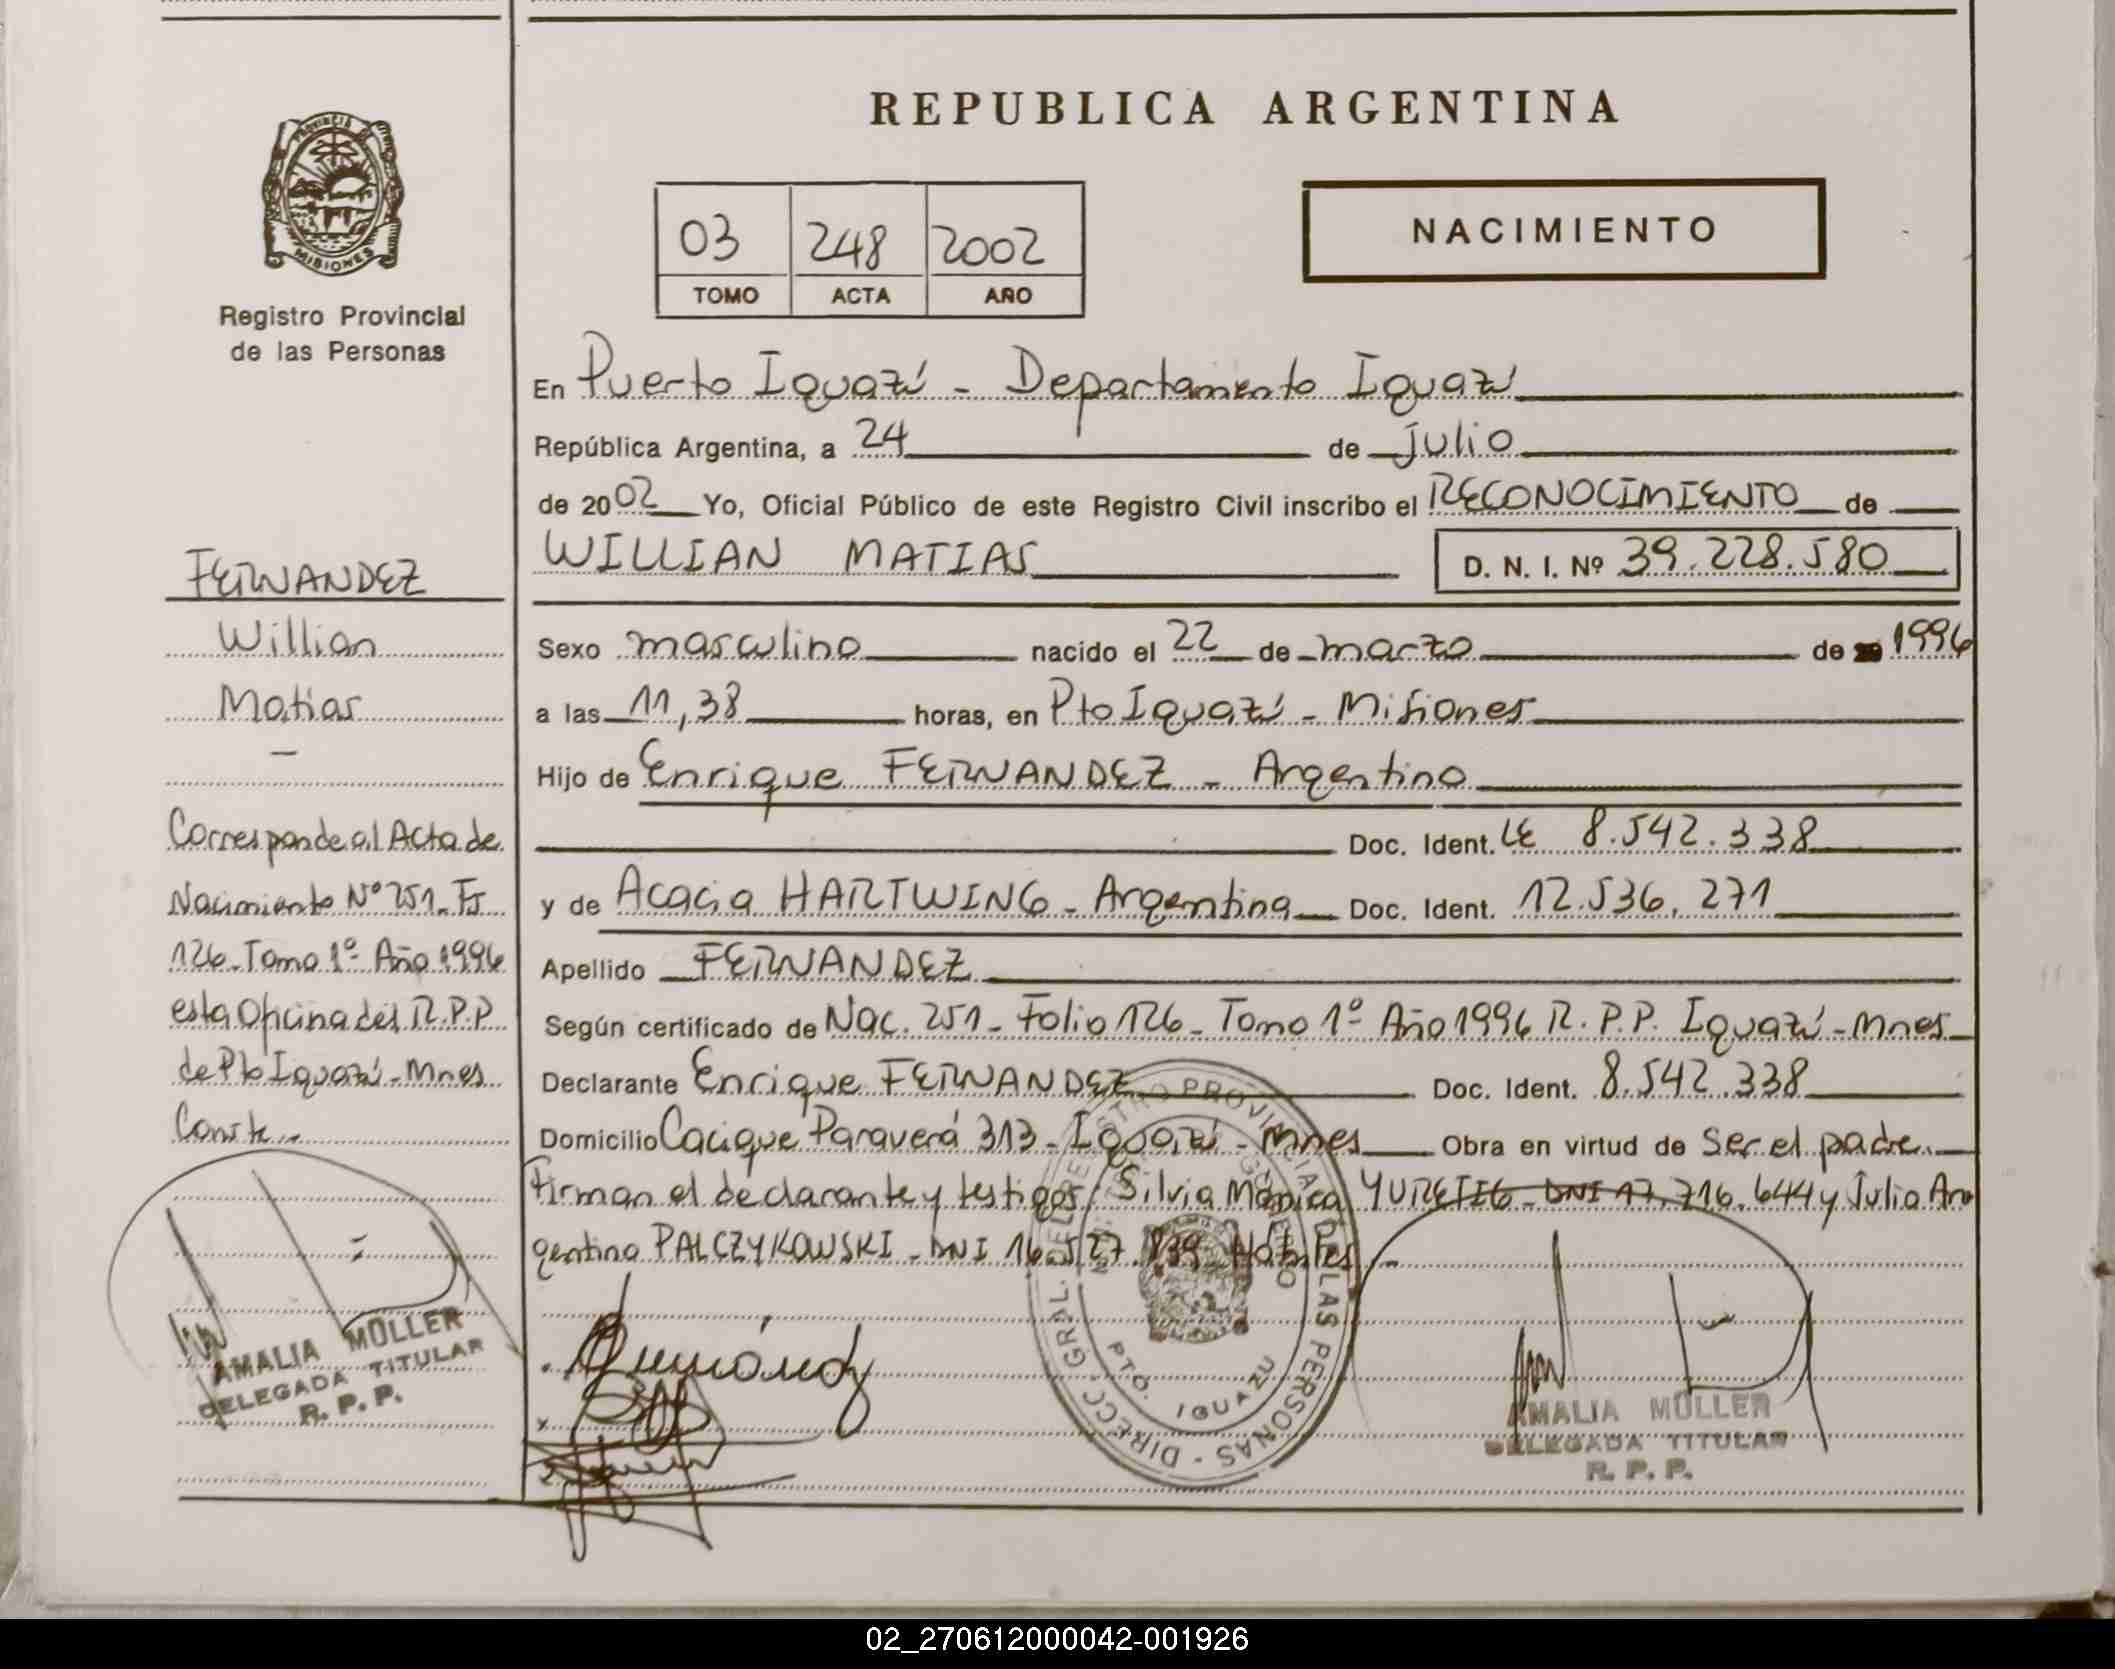 PROVINCIA DE
MISIONES
Registro Provincial
de las Personas
FERNANDEZ
Willian
Matias
—
Corresponde al Acta de
Nacimiento Nº 251_Fs
126_Tomo 1º Año 1996
esta Oficina del R.P.P
de Pto Iguazú_Mnes
Conste_
AMALIA MÜLLER
DELEGADA TITULAR
R. P. P.
REPUBLICA ARGENTINA
03 248 2002
TOMO ACTA AÑO
NACIMIENTO
En Puerto Iguazú - Departamento Iguazú
República Argentina, a 24 de julio
de 2002 Yo, Oficial Público de este Registro Civil inscribo el RECONOCIMIENTO de
WILLIAN MATIAS D. N. I. Nº 39.228.580
Sexo masculino nacido el 22 de marzo de 1996
a las 11,38 horas, en Pto Iguazú - Misiones
Hijo de Enrique FERNANDEZ - Argentino
Doc. Ident. LE 8.542.338
y de Acacia HARTWING - Argentina Doc. Ident. 12.536.271
Apellido FERNANDEZ
Según certificado de Nac. 251_Folio 126_Tomo 1º Año 1996 R.P.P. Iguazú-Mnes
Declarante Enrique FERNANDEZ Doc. Ident. 8.542.338
Domicilio Cacique Paraverá 313_Iguazú-Mnes Obra en virtud de Ser el padre.
Firman el declarante y testigos: Silvia Mónica DNI 17.716.644 y Julia Ar
gentina PALCZYKOWSKI_DNI 16.527.839 Hábiles_
DIRECC. GRAL. DEL REGISTRO PROVINCIAL DE LAS PERSONAS
PTO. IGUAZU
AMALIA MÜLLER
DELEGADA TITULAR
R. P. P.
02_270612000042-001926